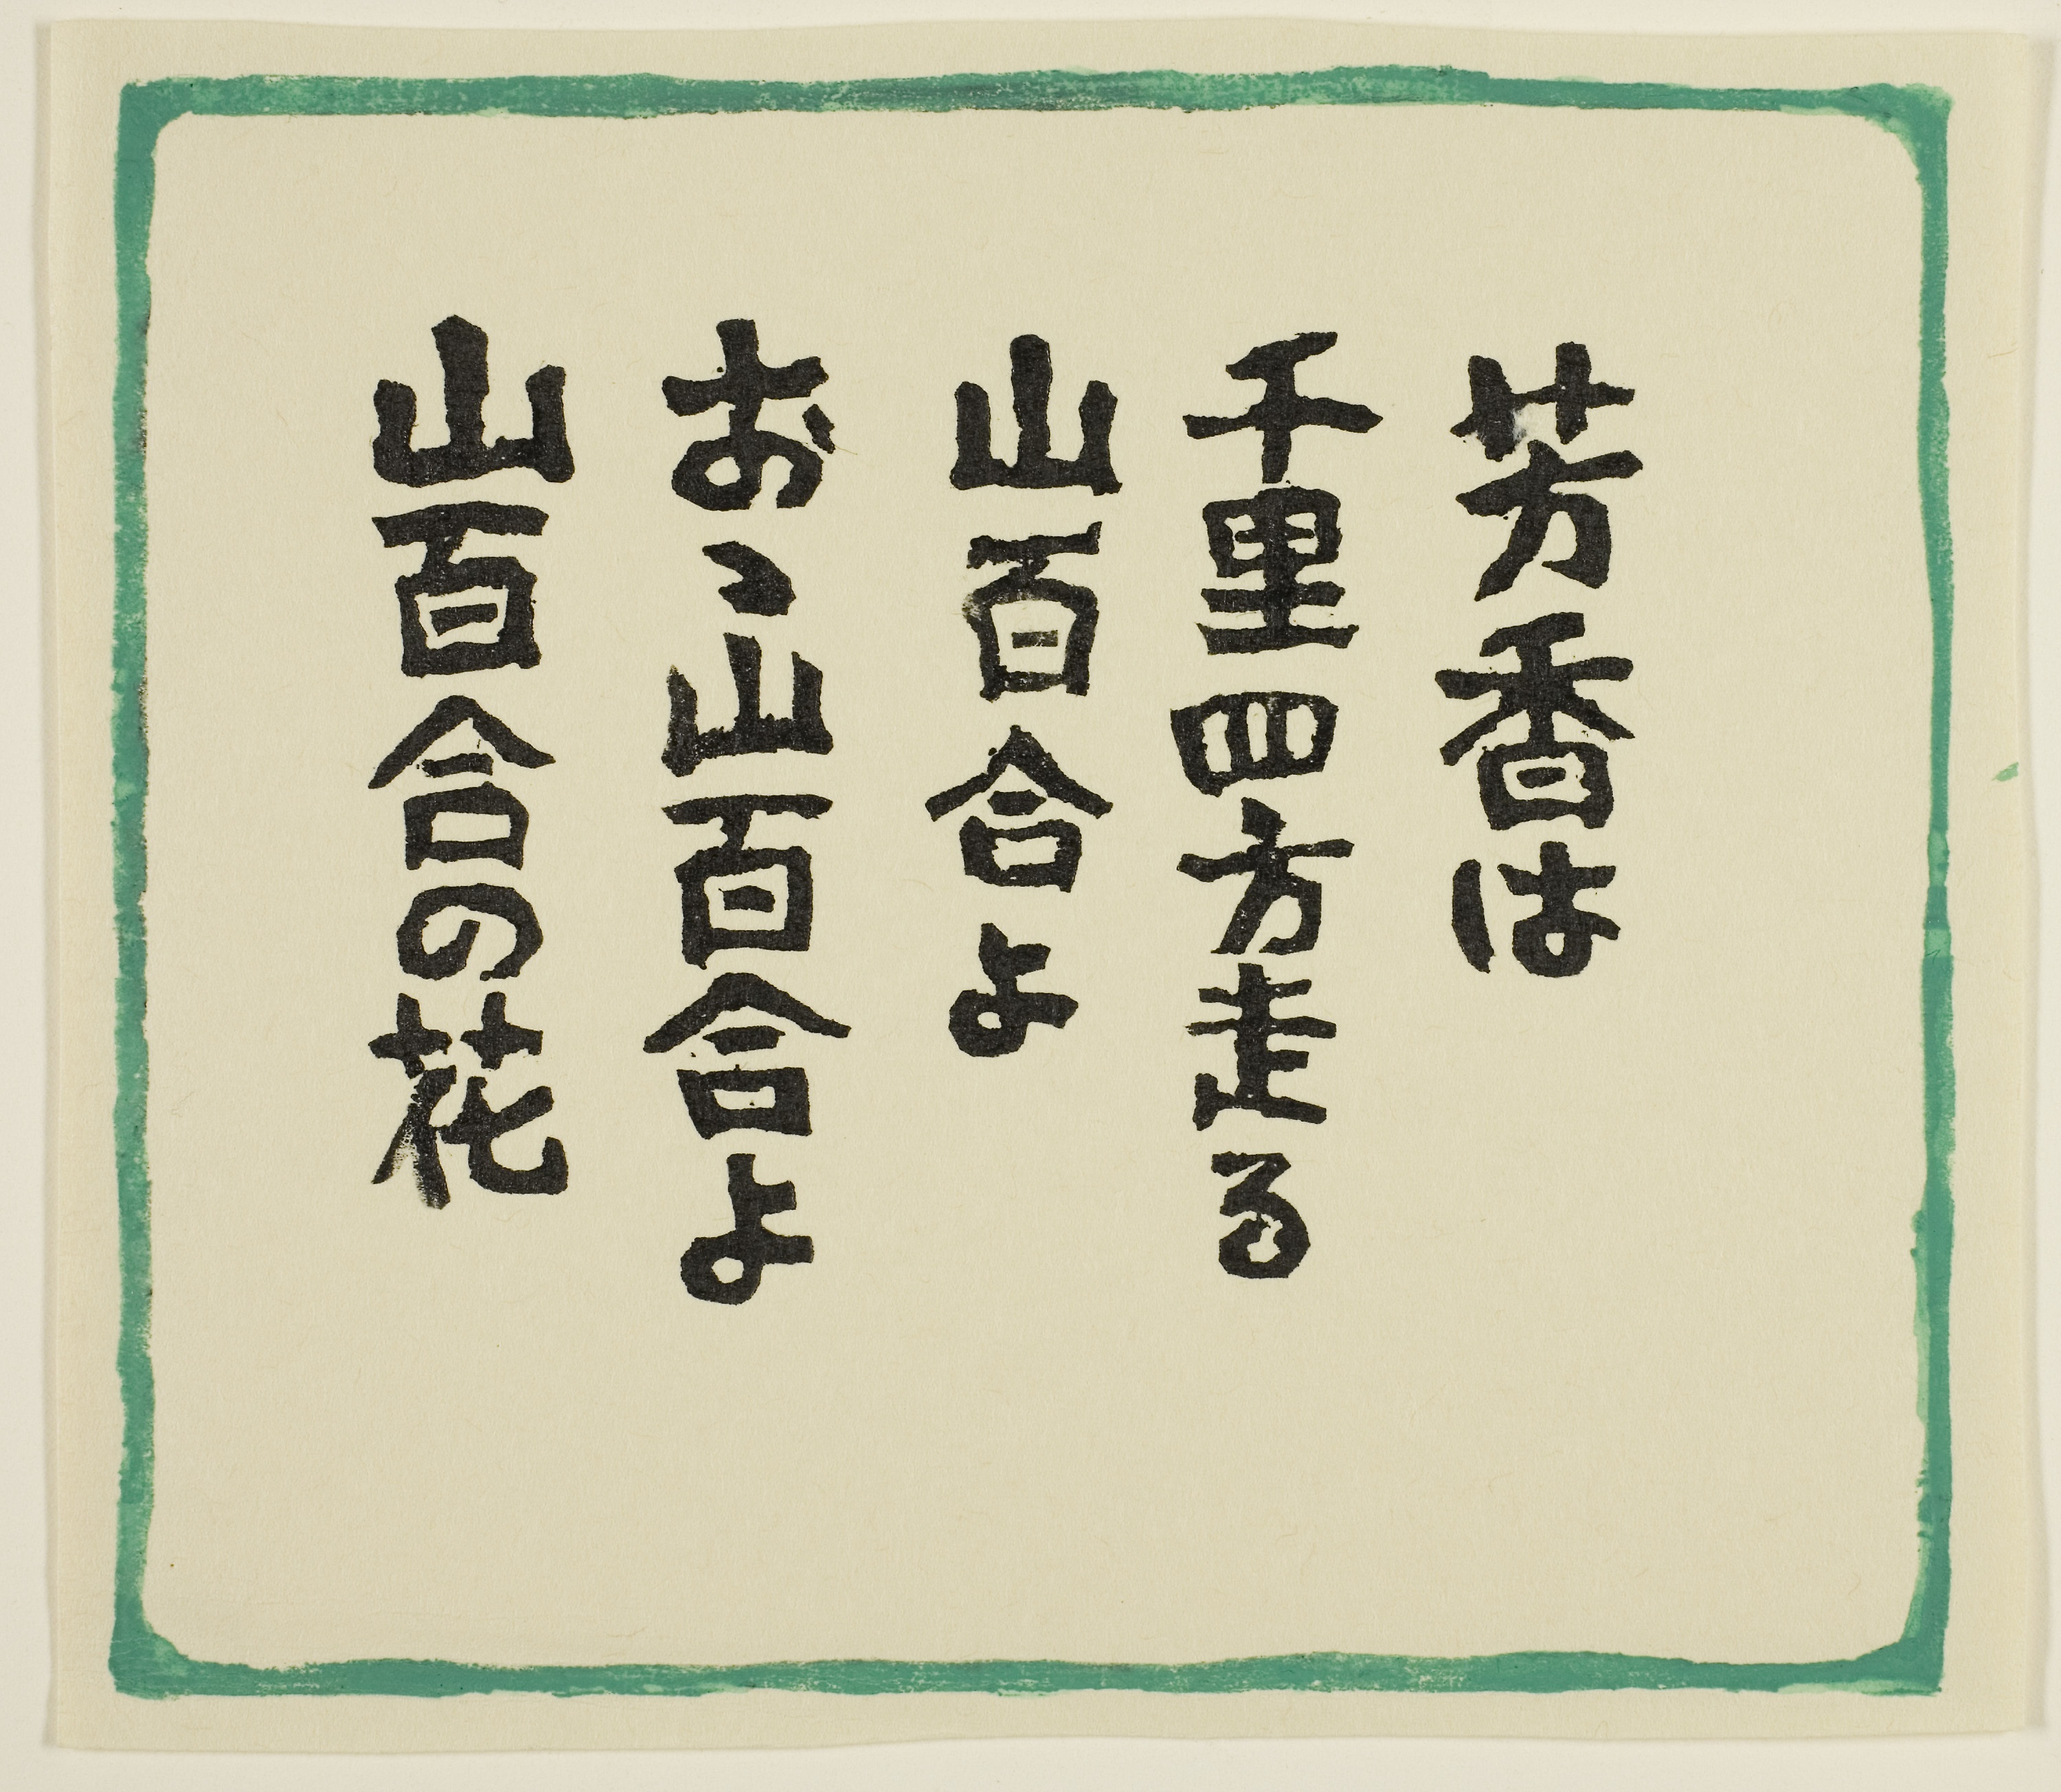 芳香は
千里四方走る
山百合よ
おゝ山百合よ
山百合の花